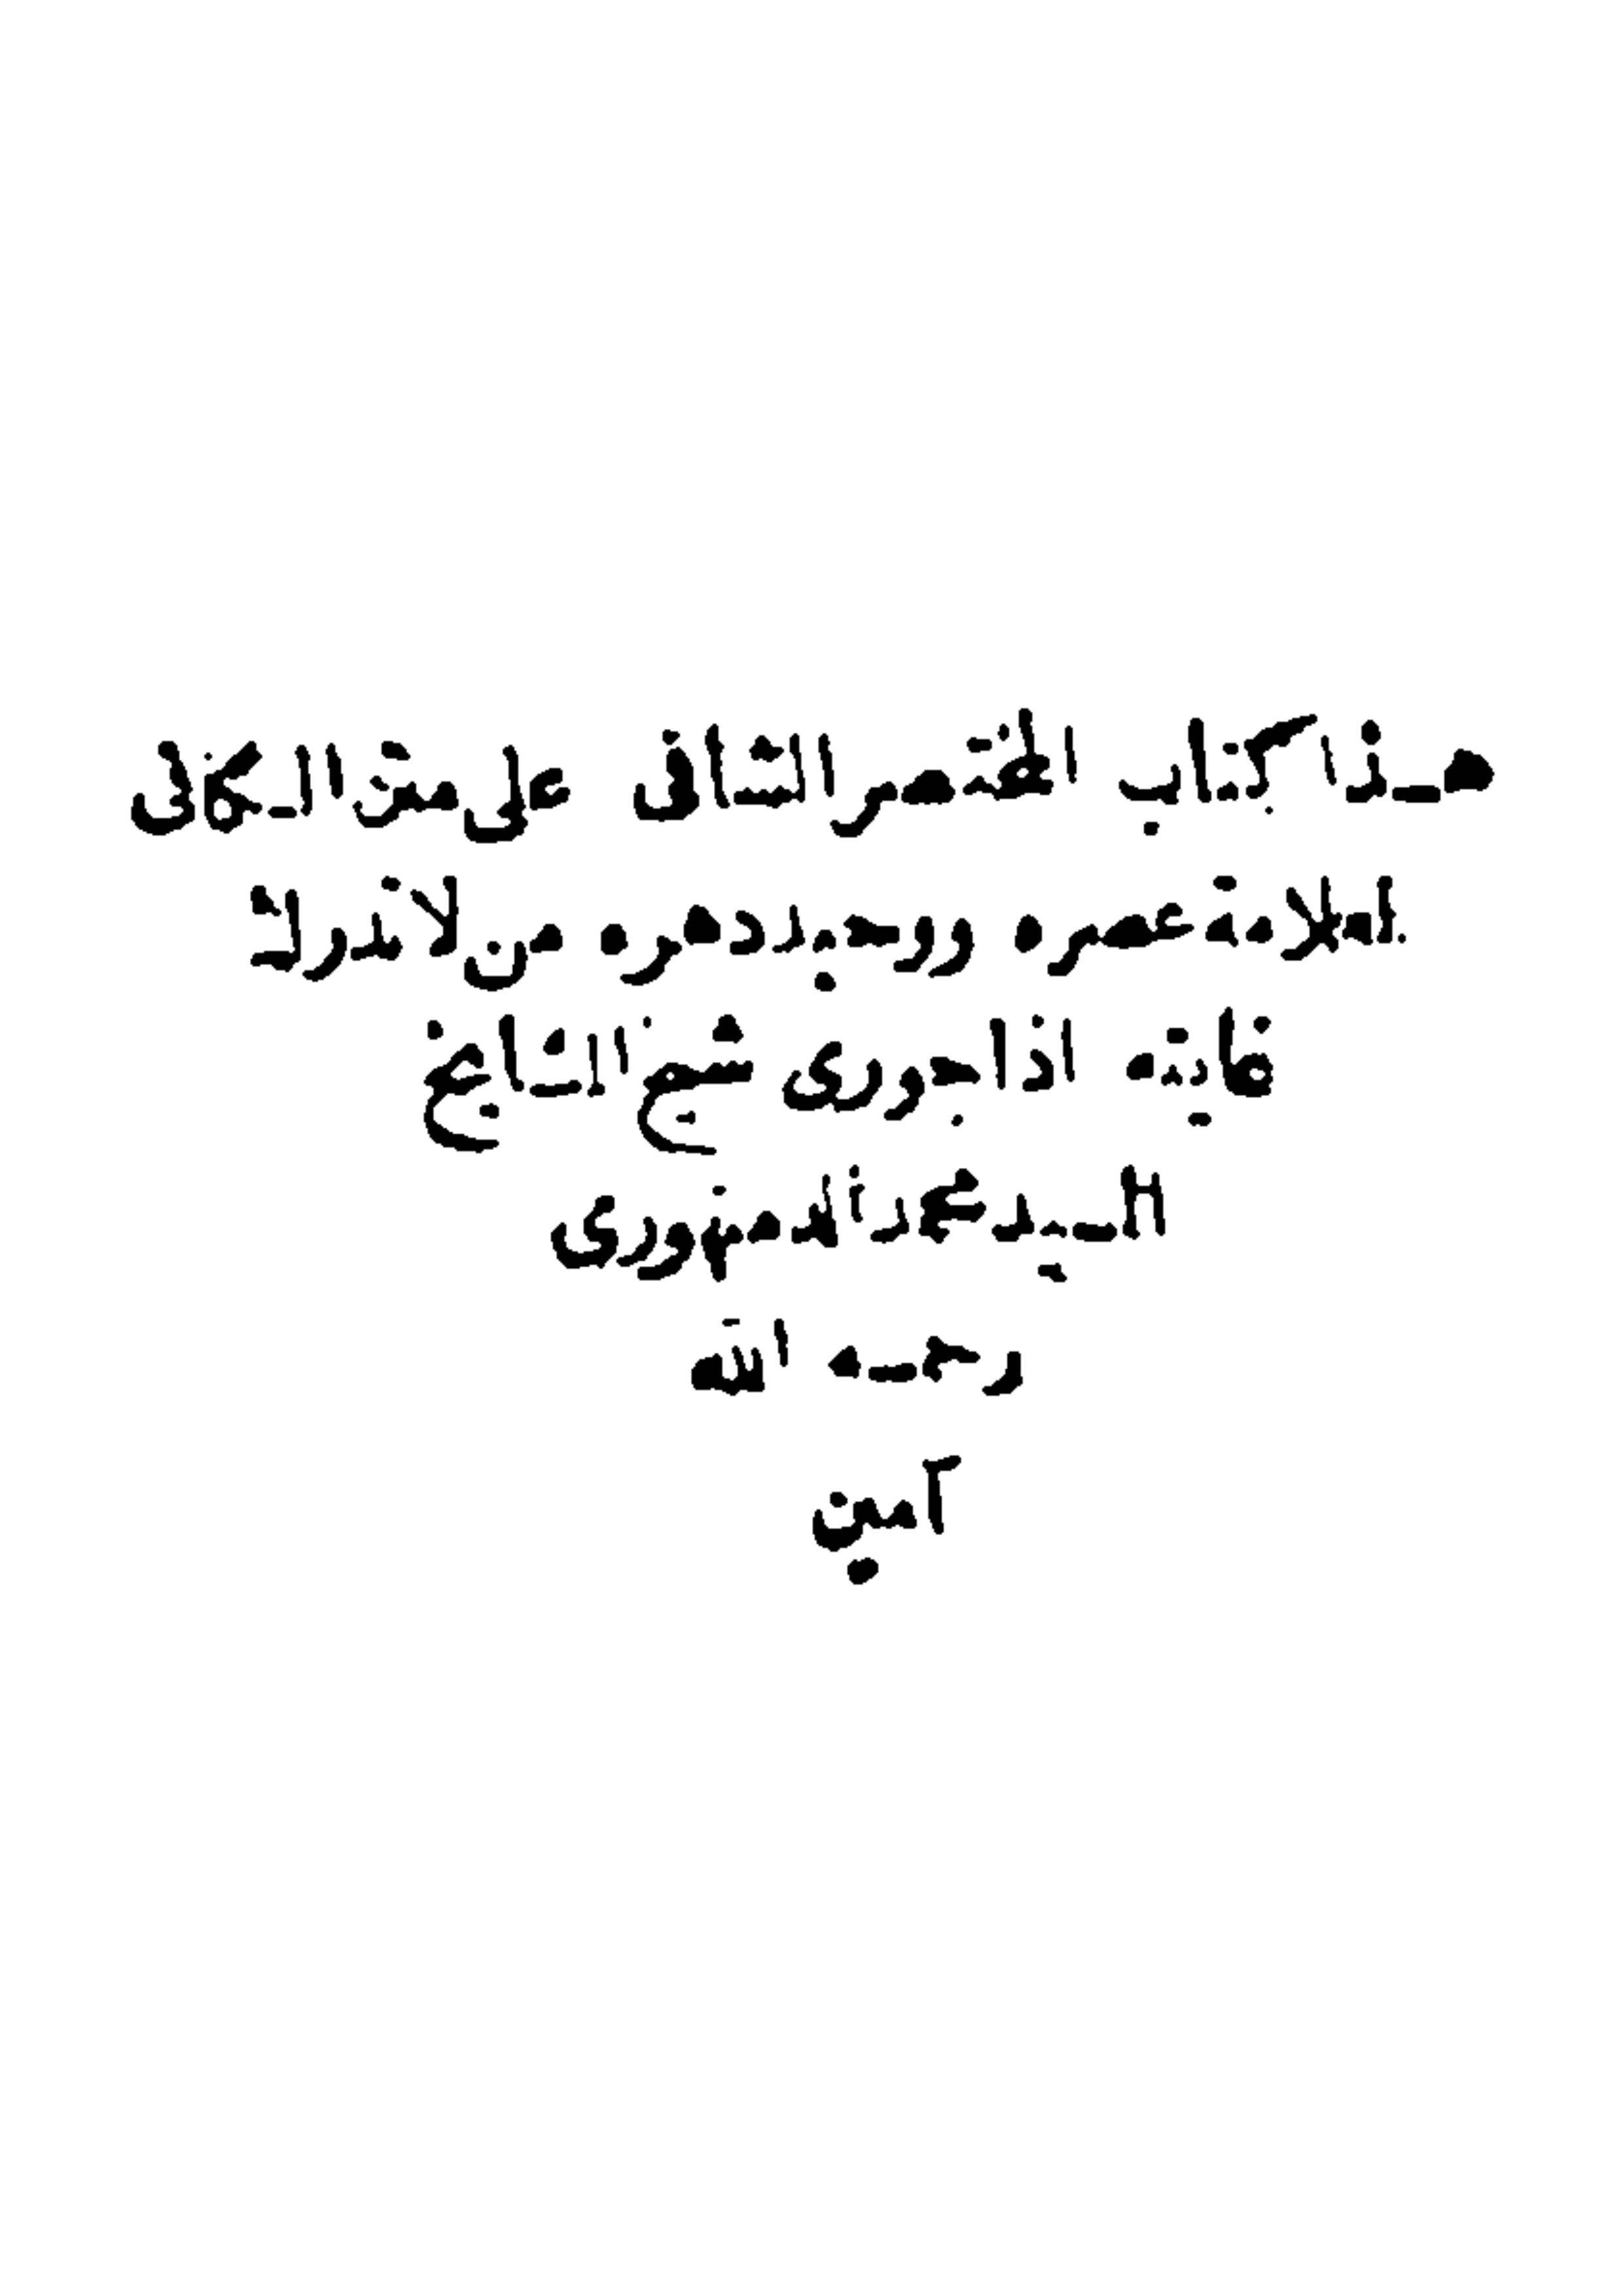 هـذا كتاب المختصر الشافى على متن الـكافى
لعلامة عصره ووحيد دهره من لا تدرك
غايته اذا جورى شيخ المشايخ
السيد محمد الدمنهورى
رحمـه الله
آمين